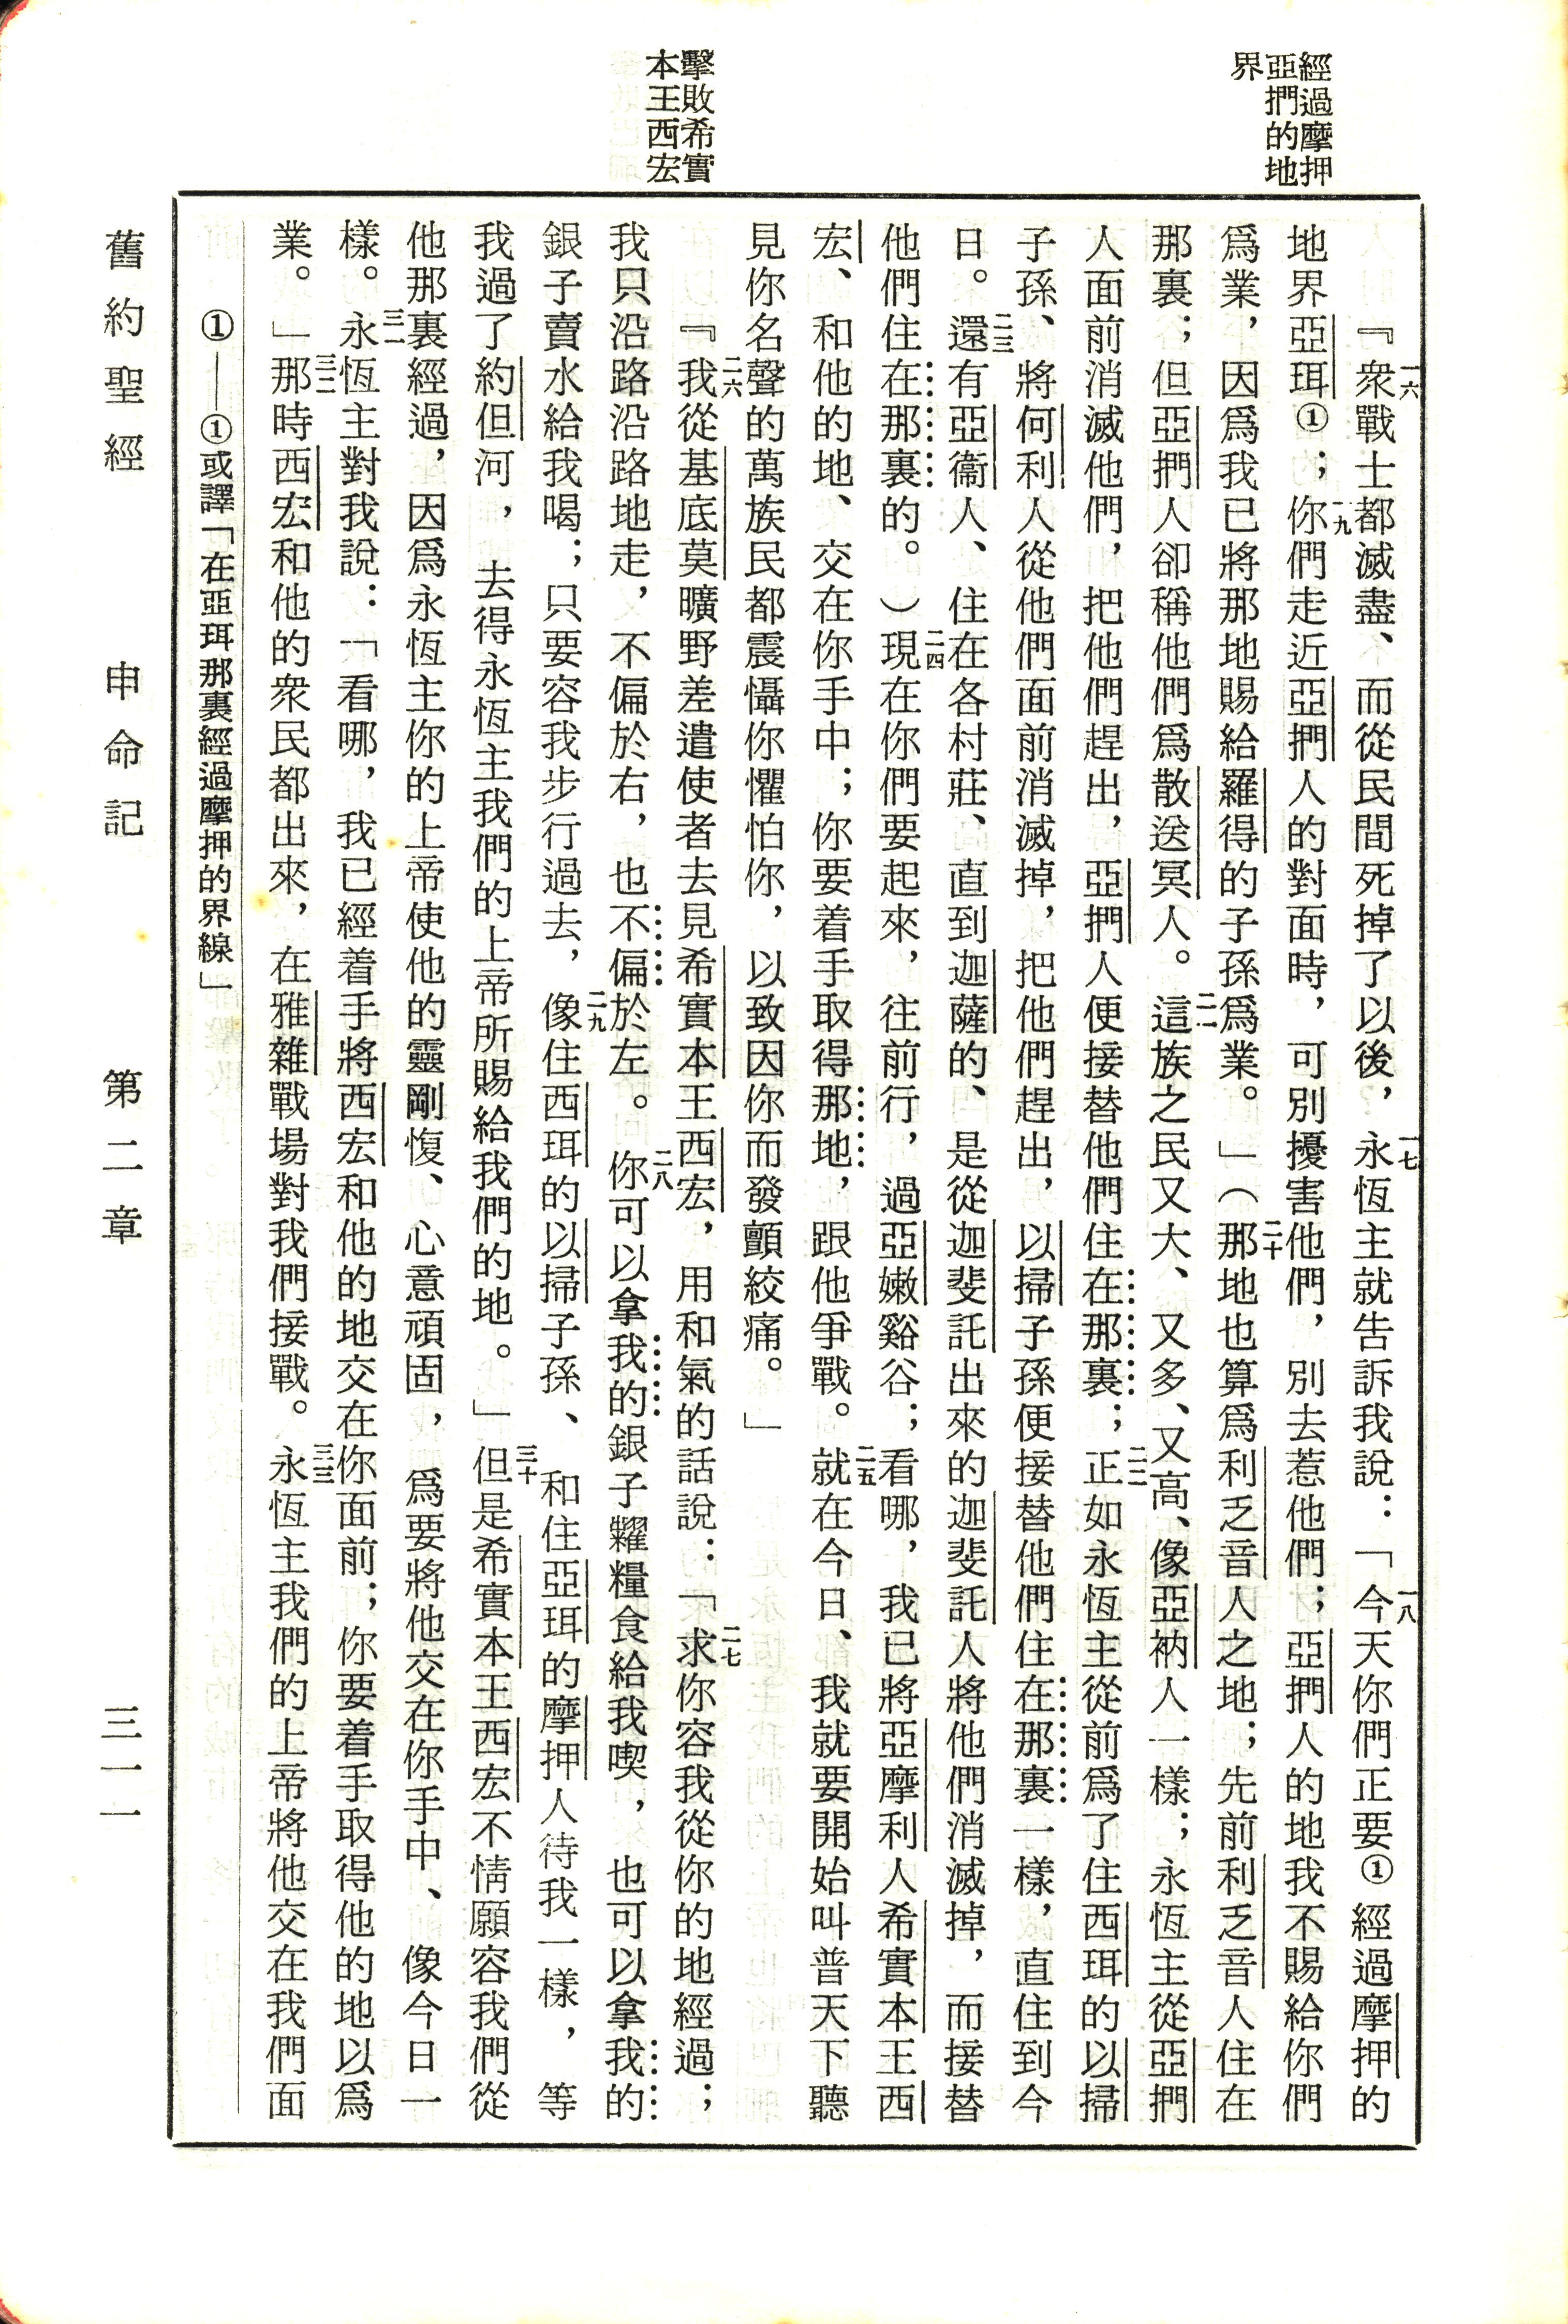 經過摩押
亞捫的地
界
擊敗希實
本王西宏
『一六衆戰士都滅盡、而從民間死掉了以後，一七永恆主就告訴我說：「一八今天你們正要①經過摩押的
地界亞珥①；一九你們走近亞捫人的對面時，可別擾害他們，別去惹他們；亞捫人的地我不賜給你們
爲業，因爲我已將那地賜給羅得的子孫爲業。」（二十那地也算爲利乏音人之地；先前利乏音人住在
那裏；但亞捫人卻稱他們爲散送冥人。二一這族之民又大、又多、又高、像亞衲人一樣；永恆主從亞捫
人面前消滅他們，把他們趕出，亞捫人便接替他們住在那裏；二二正如永恆主從前爲了住西珥的以掃
子孫、將何利人從他們面前消滅掉，把他們趕出，以掃子孫便接替他們住在那裏一樣，直住到今
日。二三還有亞衞人、住在各村莊、直到迦薩的、是從迦斐託出來的迦斐託人將他們消滅掉，而接替
他們住在那裏的。）二四現在你們要起來，往前行，過亞嫩谿谷；看哪，我已將亞摩利人希實本王西
宏、和他的地、交在你手中；你要着手取得那地，跟他爭戰。二五就在今日、我就要開始叫普天下聽
見你名聲的萬族民都震懾你懼怕你，以致因你而發顫絞痛。」
『二六我從基底莫曠野差遣使者去見希實本王西宏，用和氣的話說：「二七求你容我從你的地經過；
我只沿路沿路地走，不偏於右，也不偏於左。二八你可以拿我的銀子糶糧食給我喫，也可以拿我的
銀子賣水給我喝；只要容我步行過去，二九像住西珥的以掃子孫、和住亞珥的摩押人待我一樣，等
我過了約但河，去得永恆主我們的上帝所賜給我們的地。」三十但是希實本王西宏不情願容我們從
他那裏經過，因爲永恆主你的上帝使他的靈剛愎、心意頑固，爲要將他交在你手中、像今日一
樣。三一永恆主對我說：「看哪，我已經着手將西宏和他的地交在你面前；你要着手取得他的地以爲
業。」三二那時西宏和他的衆民都出來，在雅雜戰場對我們接戰。三三永恆主我們的上帝將他交在我們面
①——①或譯「在亞珥那裏經過摩押的界線」
舊約聖經　申命記　第二章　三一一